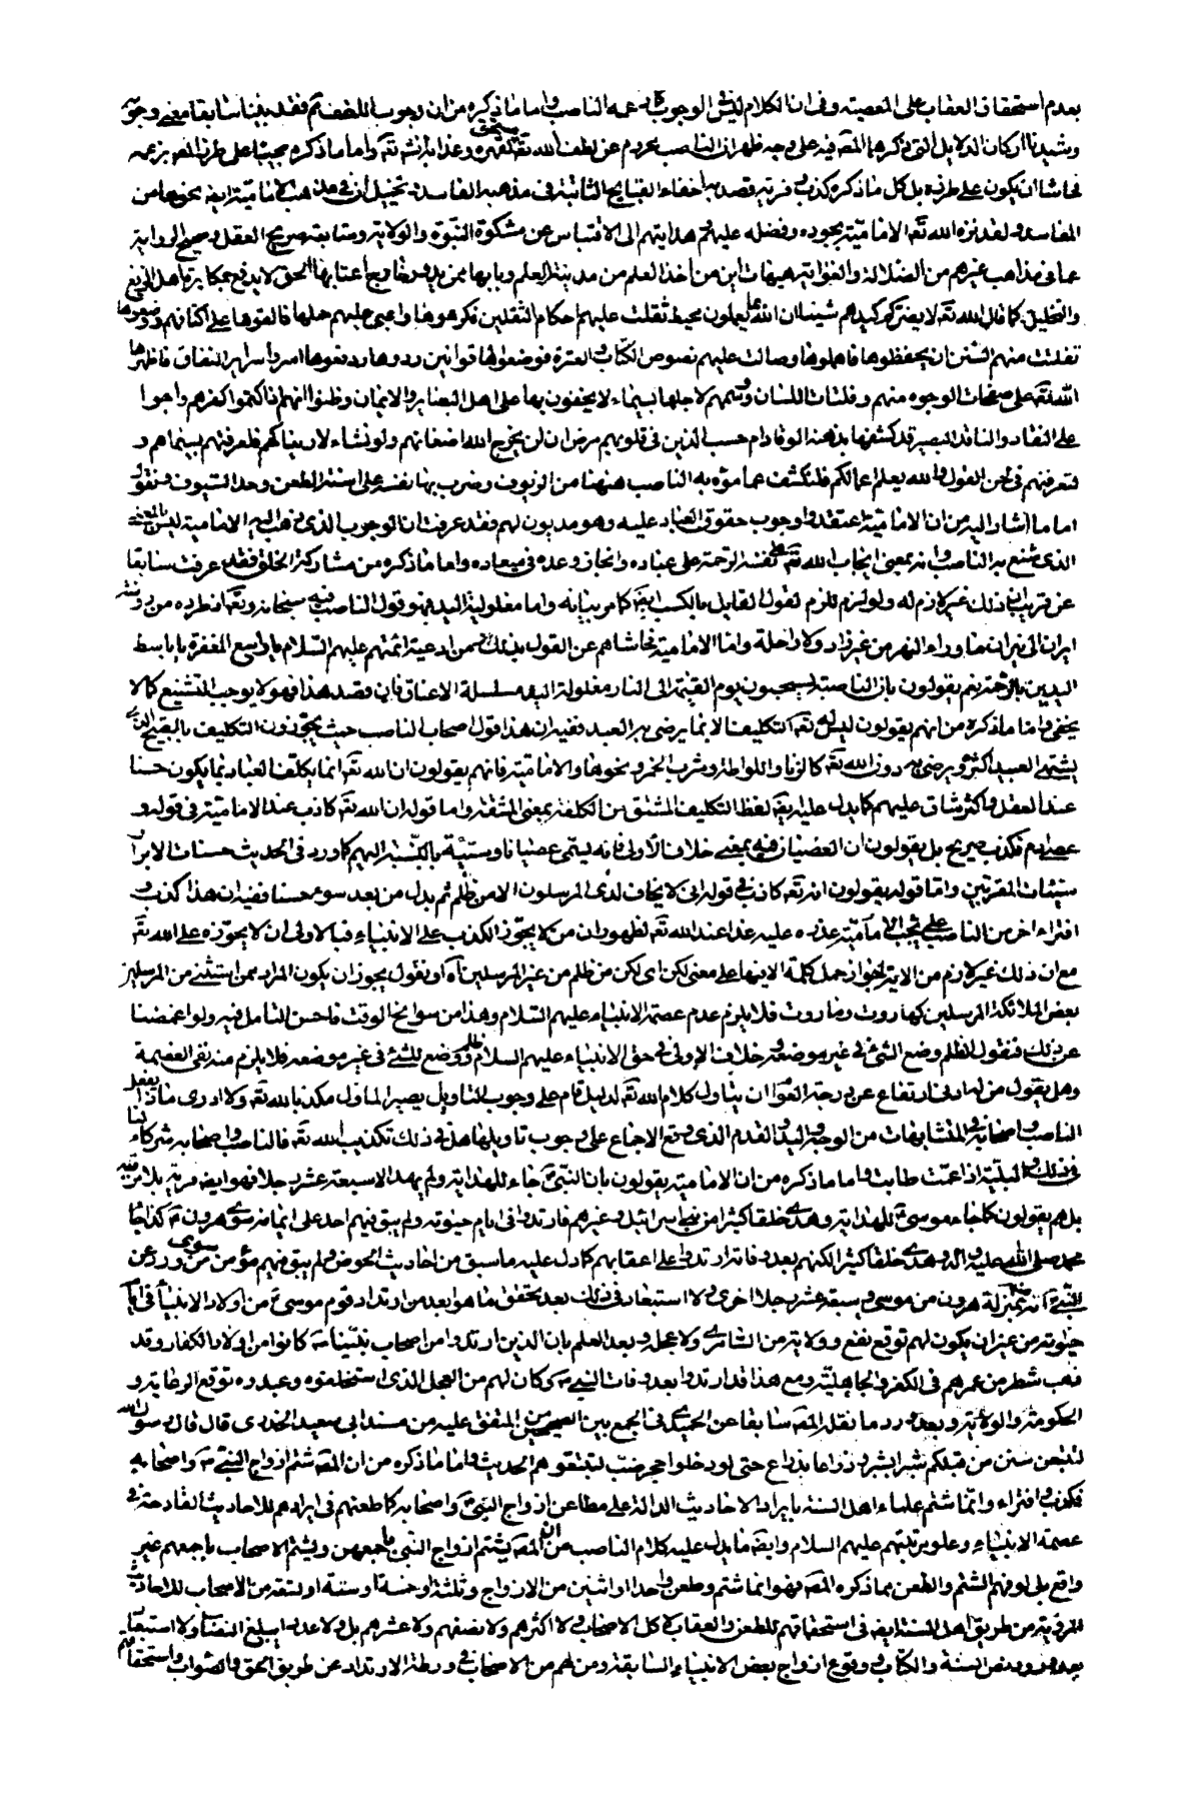 بعدم استحقاق العقاب على المعصية وفي ان الكلام ليس الوجوب كما عمه الناصب واما ما ذكره من ان وجوب اللطف فقد بينا سابقا معنى وجوبه
وشيدنا اركان الدلايل التى ذكرها المص فيه على وجه ظهر ان الناصب محروم عن لطف الله تع مستحق لقهره وعذابه انشه تع واما ما ذكره مجيبا على طرز المص بزعمه
فحاشا ان يكون على طرزه بل كل ما ذكره كذب وفرية قصد بها اخفاء القبايح الثابتة في مذهبه الفاسد بتخيل ان في مذهب الامامية ايضا نحوها من
المفاسد ولقد نزه الله تع الامامية بجوده وفضله عليهم وهدايتهم الى الاقتباس من مشكوة النبوة والولاية ومتابعة صريح العقل وصحيح الرواية
عما في مذاهب غيرهم من الضلالة والغواية هيهات اين من اخذ العلم من مدينة العلم وبابها ممن يدور خارج اعتابها الحق لا يدفع بمكابرة اهل الزيغ
والتخليل كما قال الله تع لا يضركم كيدهم شيئا ان الله بما يعملون محيط ثقلت عليهم احكام الثقلين فكرهوها واعيى عليهم حملها فالقوها على اكتافهم ووضعوها
تفلتت منهم السنن ان يحفظوها فاهملوها وصالت عليهم نصوص الكتاب والعترة فوضعوا لها قوانين ردوها ودفعوها اسروا سراير النفاق فاظهرها
الله تع على صفحات الوجوه منهم وفلتات اللسان ووسمهم لاجلها بسيماء لا يخفون بها على اهل البصاير والايمان وظنوا انهم اذا كتموا كفرهم راجوا
على النقاد والناقد البصير قد كشفها بذهنه الوقاد ام حسب الذين في قلوبهم مرض ان لن يخرج الله اضغانهم ولو نشاء لاريناكهم فلعرفتهم بسيماهم و
لتعرفنهم في لحن القول والله يعلم اعمالكم فلنكشف عما موه به الناصب هيهنا من الزيوف وضرب بها نفسه على اسنة الطعن وحد السيوف ونقول
اما ما اشار اليه من ان الامامية اعتقدوا وجوب حقوق العباد عليه وهو مديون لهم فقد عرفت ان الوجوب الذى ذهب اليه الامامية ليس بالمعنى
الذى شنع به الناصب وانه بمعنى ايجاب الله تع على نفسه الرحمة على عباده وانجاز وعده في ميعاده واما ما ذكره من مشاركة الخلق فقد عرفت سابقا
عن قريب ان ذلك غير لازم له ولو لزم للزم لقول القايل بالكسب ايضا كما مر بيانه واما مغلولية اليد فهو قول الناصب فيه سبحانه وتع اذ طرده من
ايران الى نيران ما وراء النهر من غير زاد ولا راحلة واما الامامية فحاشاهم عن القول بذلك ومن ادعية ائمتهم عليهم السلام يا واسع المغفرة يا باسط
اليدين بالرحمة نعم يقولون بان الناصبة يسحبون يوم القيمة الى النار مغلولة اليد مسلسلة الاعناق فان قصد هذا فهو لا يوجب التشنيع كما لا
يخفى واما ما ذكره من انهم يقولون ليس لله تع التكليف الا بما يرضى به العبد ففيه ان هذا قول اصحاب الناصب حيث يجوزون التكليف بالقبيح الذى
يشتهى العبيد اكثره ويرضى به دون الله تع كالزنا واللواطة وشرب الخمر ونحوها والامامية فانهم يقولون ان الله تع انما يكلف العباد بما يكون حسنا
عند العقل واكثره شاق عليهم كما يدل عليه ايضا لفظ التكليف المشتق من الكلفة بمعنى المشقة واما قوله ان الله تع كاذب عند الامامية في قوله و
عصى ادم فكذب صريح بل يقولون ان العصيان فيه بمعنى خلاف الاولى فانه يسمى عصيانا وسيئة بالنسبة اليهم كما ورد في الحديث حسنات الابرار
سيئات المقربين واما قوله يقولون انه تع كاذب في قوله انى لا يخاف لدى المرسلون الا من ظلم ثم بدل حسنا بعد سوء ففيه ان هذا كذب و
افتراء اخر من الناصب على الامامية عليه غدا عند الله تع لظهور ان من لا يجوز الكذب على الانبياء فبالاولى ان لا يجوزه على الله تع
مع ان ذلك غير لازم من الاية لجواز حمل كلمة الا فيها على معنى لكن اى لكن من ظلم من غير المرسلين آه او نقول يجوز ان يكون المراد بمن استثنى من المرسلين
بعض الملائكة المرسلين كهاروت وماروت فلا يلزم عدم عصمة الانبياء عليهم السلام وهذا من سوانح الوقت فاحسن التامل فيه ولو اغمضنا
عن ذلك فنقول الظلم وضع الشئ في غير موضعه وخلاف الاولى في حق الانبياء عليهم السلام ظلم ووضع للشئ في غير موضعه فلا يلزم منه نفى العصمة
وهل يقول من له ادنى ارتفاع عن درجة العوام ان يتاول كلام الله تع لدليل قام على وجوب التاويل يصير الماول مكذبا لله تع ولا ادرى ماذا يفعل
الناصب واصحابه في المتشابهات من الوجه واليد والقدم الذى وقع الاجماع على وجوب تاويلها هل في ذلك تكذيب الله تع فالناصب واصحابه شركاء لنا
في ذلك والبلية اذا عمت طابت واما ما ذكره من ان الامامية يقولون بان النبى ص جاء للهداية ولم يهد الا سبعة عشر رجلا فهو ايضا فرية بلا مرية
بل هم يقولون كما جاء موسى ع للهداية وهدى خلقا كثيرا من بنى اسرائيل وغيرهم فارتدوا في ايام حيوته ولم يبق فيهم احد على ايمانه سوى هرون ع كذا جاء
محمد صلى الله عليه واله وهدى خلقا كثيرا لكنهم بعد وفاته ارتدوا على اعقابهم كما دل عليه ما سبق من احاديث الحوض ولم يبق فيهم مؤمن سوى من ورد عن
النبى ص انه بمنزلة هرون من موسى وسبعة عشر رجلا اخرى ولا استبعاد في ذلك بعد تحقق ما هو ابعد من ارتداد قوم موسى ع من اولاد الانبياء في ايام
حيوته من غير ان يكون لهم توقع نفع وولاية من السامرى ولا عجل وبعد العلم بان الذين ارتدوا من اصحاب نبينا ص كانوا من اولاد الكفار وقد
ذهب شطر من عمرهم في الكفر والجاهلية ومع هذا قد ارتدوا بعد وفات النبى ص وكان لهم من العجل الذى استخلفوه وعبدوه توقع الرعاية و
الحكومة والولاية وبعد ورود ما نقله المص سابقا عن الحميدى في الجمع بين الصحيحين من المتفق عليه من مسند ابى سعيد الخدرى قال قال رسول الله
لتتبعن سنن من قبلكم شبرا بشبر وذراعا بذراع حتى لو دخلوا جحر ضب لتبعتموهم الحديث واما ما ذكره من ان المص شتم ازواج النبى ص واصحابه
فكذب وافتراء وانما شتم علماء اهل السنة بايراد الاحاديث الدالة على مطاعن ازواج النبى ص واصحابه كما طعنهم في ايرادهم للاحاديث القادحة في
عصمة الانبياء وعلو رتبتهم عليهم السلام وايضا ما يدل عليه كلام الناصب من ان المص يشتم ازواج النبى باجمعهن ويشتم الاصحاب باجمعهم غير
واقع بل لو فهم الشتم والطعن مما ذكره المص فهو انما شتم وطعن واحدا او اثنين من الازواج وثلثة او خمسة او ستة او تسعة من الاصحاب للاحاديث
المروية من طريق اهل السنة ايضا في استحقاقهم للطعن والعقاب لا كل الاصحاب ولا اكثرهم ولا نصفهم ولا عشرهم بل ولا عددا يبلغ النصاب ولا استبعاد
بعد ورود نص السنة والكتاب في وقوع ازواج بعض الانبياء السابقة ومن لهم من الاصحاب في ورطة الارتداد عن طريق الحق والصواب واستحقاقهم